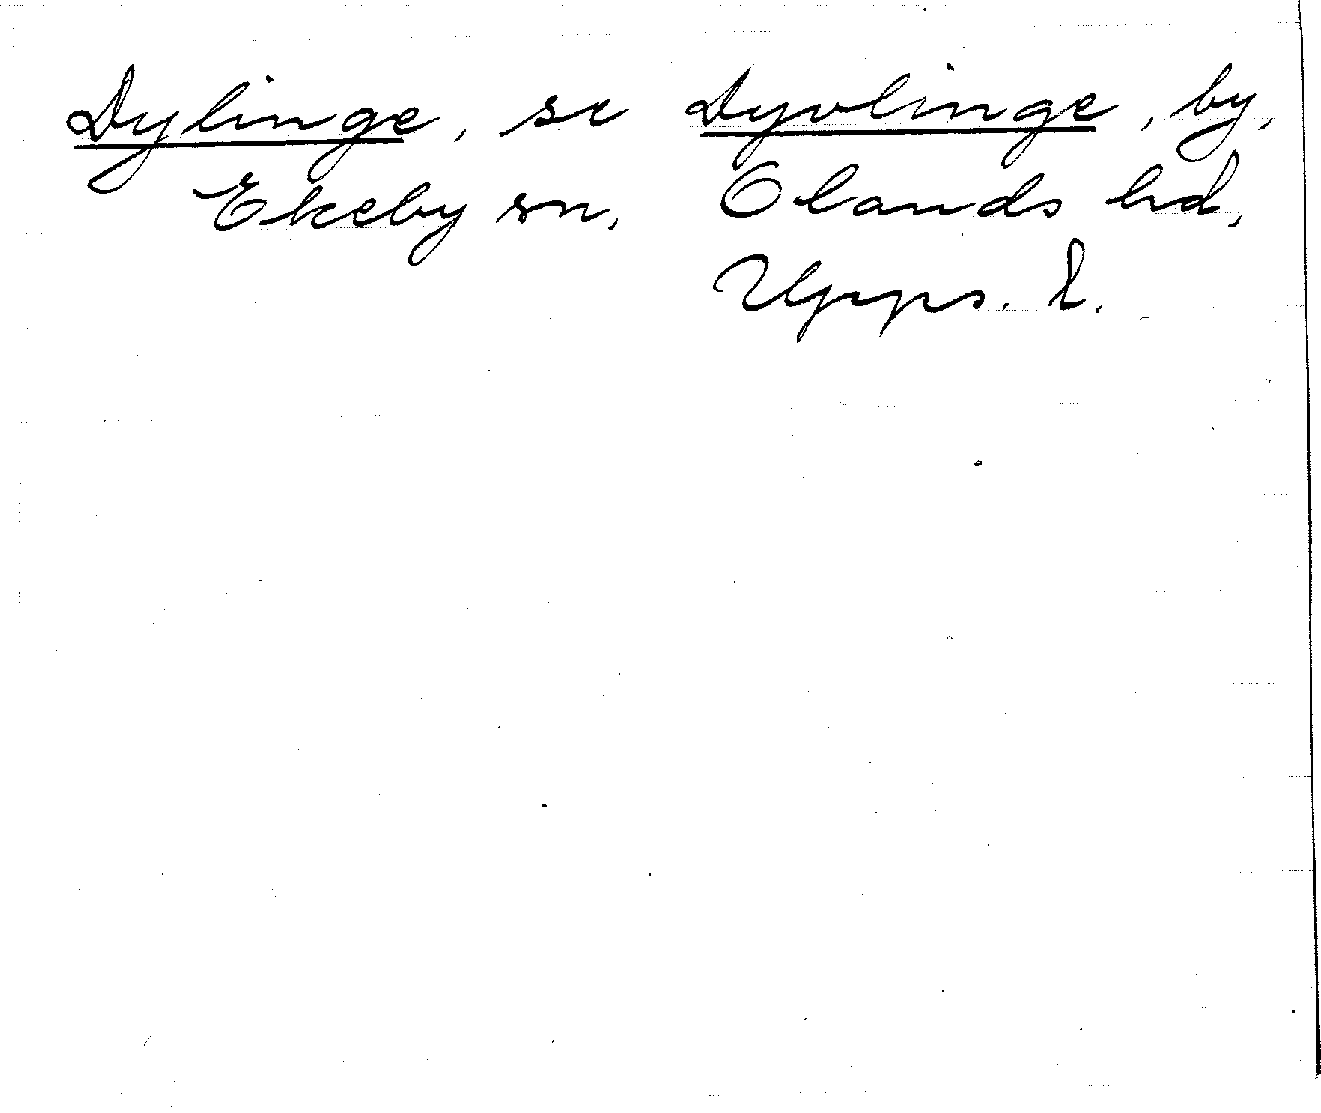 Dylinge, se Dyvlinge, by,
Ekeby sn, Olands hd,
Upps. l.